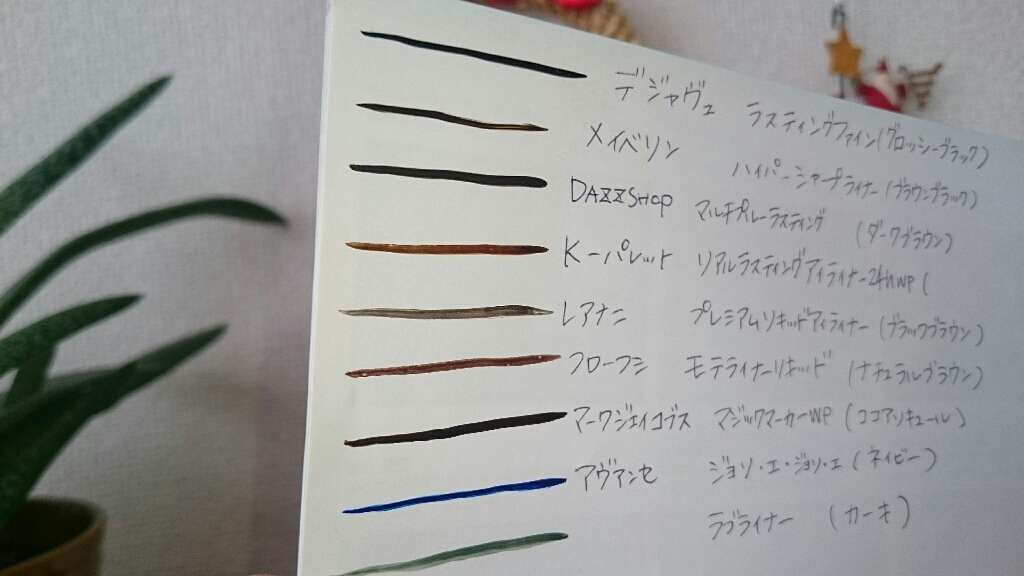 デジャヴュ ラスティングファイン(グロッシーブラック)
メイベリン ハイパーシャープライナー(ブラウンブラック)
DAZZSHOP マルチプルラスティング (ダークブラウン)
K-パレット リアルラスティングアイライナー24hWP(
レアナニ プレミアムリキッドアイライナー(ブラックブラウン)
フローフシ モテライナーリキッド (ナチュラルブラウン)
マークジェイコブス マジックマーカーWP(ココアリキュール)
アヴァンセ ジョリ・エ・ジョリ・エ(ネイビー)
ラブライナー (カーキ)